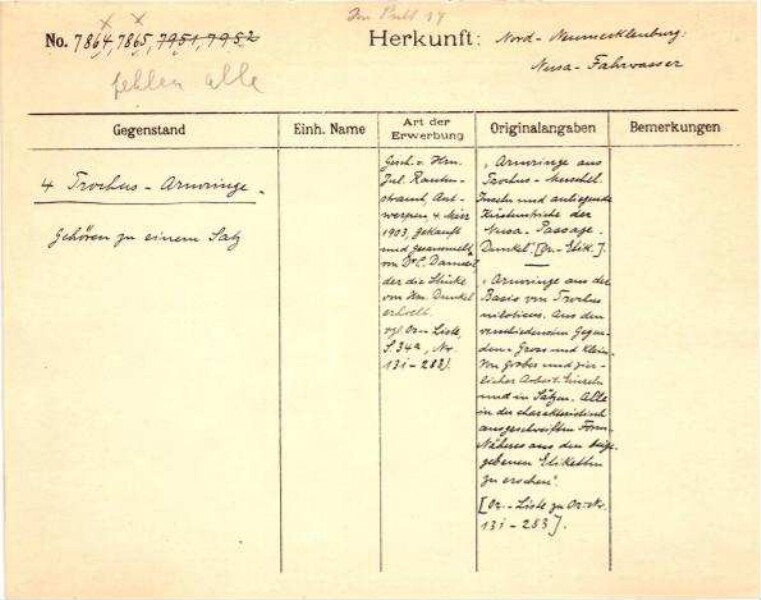 No. 7864, 7865, 7951, 7952
fehlen alle
Herkunft: Nord-Neumecklenburg:
Nusa-Fahrwasser
Gegenstand
Einh. Name
Art der
Erwerbung
Originalangaben
Bemerkungen
4 Trochus-Armringe.
Gehören zu einem Satz
Gesch. v. Hrn.
Jul. Rauten-
strauch, Ant-
werpen, 4. März
1903, gekauft
und gesammelt
von Dr C. Damm
der die Stücke
von Hrn. Dunkel
erhielt.
vgl. Or-Liste,
S. 34a, Nr.
131-283).
"Armringe aus
Trochus-Muschel.
Inseln und anliegende
Küstenstriche der
Nusa-Passage.
Dunkel". [Or.-Etik.].
"Armringe aus der
Basis von Trochus
niloticus. Aus den
verschiedensten Gegen-
den. Gross und klein.
Von grober und zier-
licher Arbeit. Einzeln
und in Sätzen. Alle
in der charakteristisch
ausgeschweiften Form.
Näheres aus den beige-
gebenen Etiketten
zu ersehen".
[Or.-Liste zu Or.-Nr.
131-283].